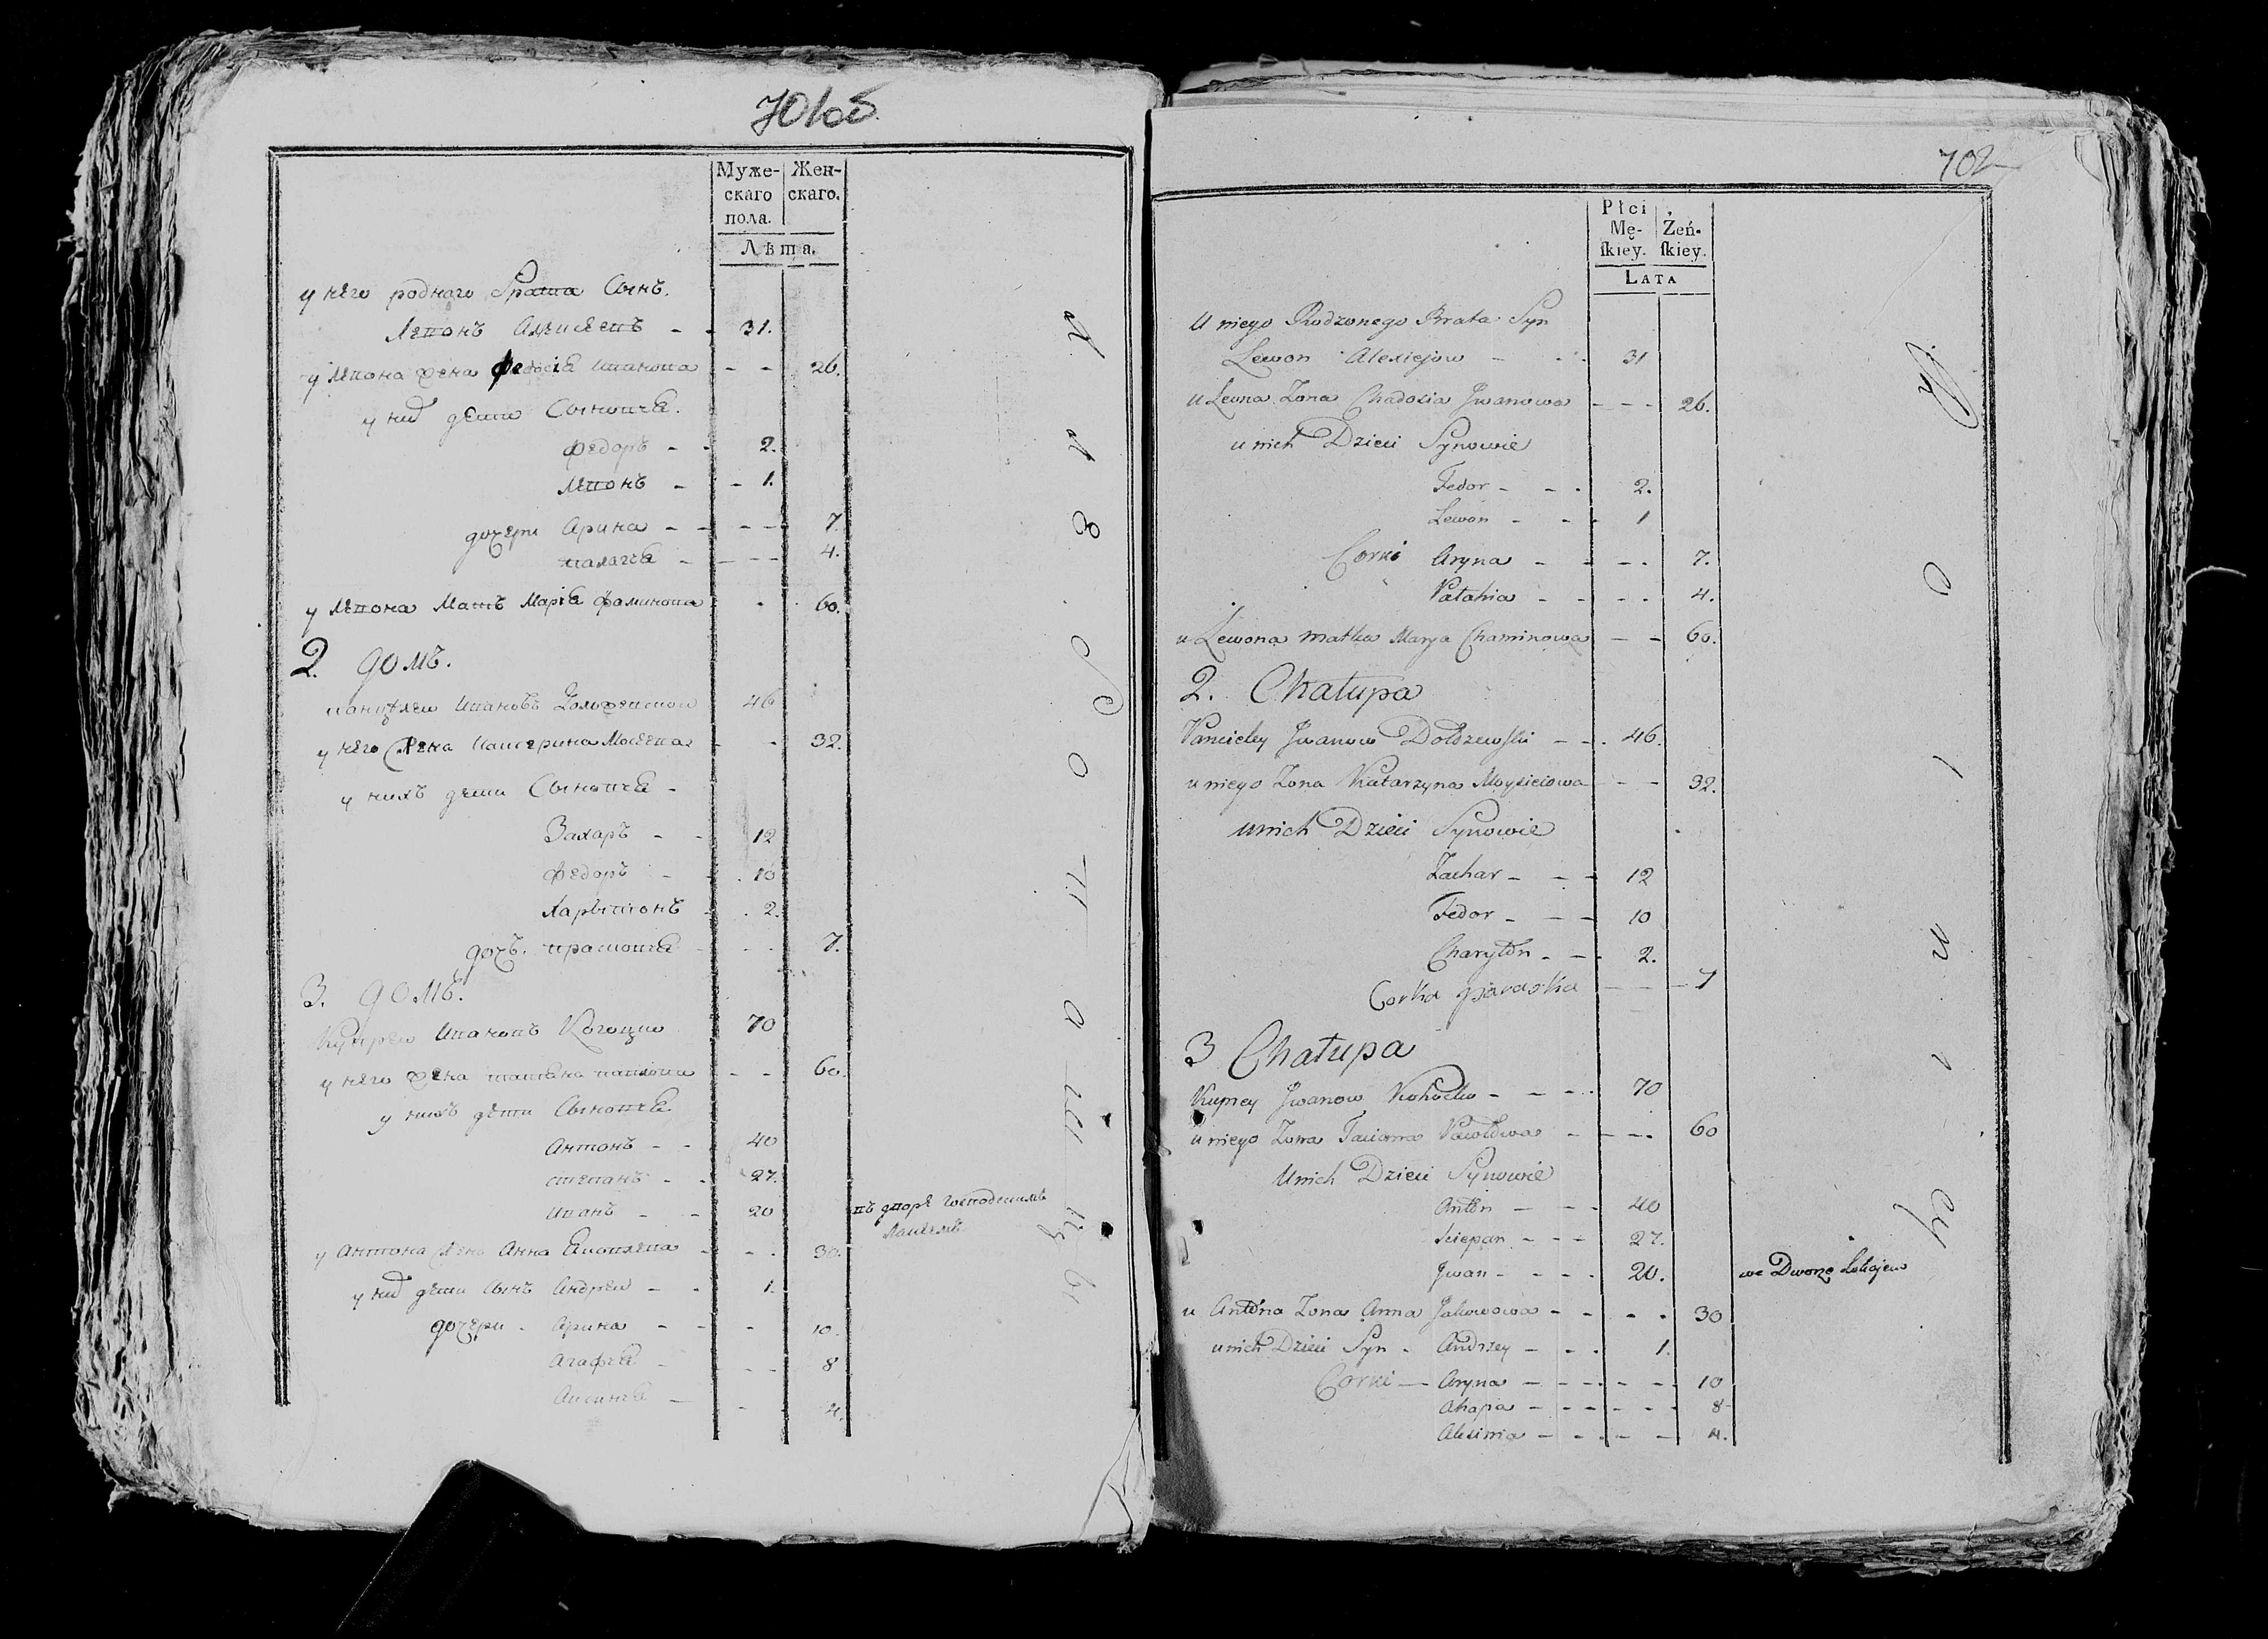 701об
Муже- Жен-
скаго скаго.
пола.
Лѣта.
у него роднаго брата Сынъ.
Левонъ Алексеевъ - - 31.
у левона жена федосія иванова - - 26.
у них дети Сыновия.
федоръ - - 2.
левонъ - - 1.
дочери Арина - - - - 7.
палагия - - - - 4.
у левона Мать Марія фоминова - 60.
2. домъ.
панцѣлеи ивановъ Должевский 46
у него жена катерина Мосеева - - 32.
у нихъ дети Сыновия -
Захаръ - - 12
федоръ - - 10
харытонъ - 2.
дочь. прасковия - - - 7.
3. домъ.
Купреи ивановъ Когоцко 70
у него жена татьяна павлова - - 60.
у нихъ дети Сыновия
Антонъ - - 40
степанъ - - 27.
иванъ - - 20 въ дворе господскимъ
лакеемъ
у антона жена Анна Яковлева - - 30.
у них дети сынъ Андреи - - 1.
дочери - Арина - - - 10.
Агафия - - - 8
Аксиния - - - 4.
702
Płci
Mę- Żeń-
ſkiey. ſkiey.
LATA
U niego Rodzonego Brata Syn
Lewon Alexiejow - - 31
u Lewna Zona Chadosia Jwanowa - - - 26.
u nich Dzieci Synowie
Fedor - - - 2.
Lewon - - - 1
Corki Aryna - - - - 7.
Patahia - - - - 4.
u Lewona matka Marya Chaminowa - - 60.
2. Chatupa
Pancieley Jwanow Dołżewski - - . 46.
u niego Zona Katarzyna Moysieiowa - - - 32.
u nich Dzieci Synowie
Zachar - - - 12
Fedor - - - 10
Charytón - - - 2.
Corka Paraska - - - 7
3 Chatupa
Kuprey Jwanow Kohocko - - - - 70
u niego Zona Taciana Pawłowa - - - - 60
U nich Dzieci Synowie
Antón - - - 40
Sciepan - - - 27.
Jwan - - - - 20. we Dworze Lokajem
u Antóna Zona Anna Jakowowa - - - - 30
u nich Dzieci Syn - Andrzey - - - 1.
Corki - Aryna - - - - - - 10
Ahapia - - - - - - 8
Aksinia - - - - - 4.